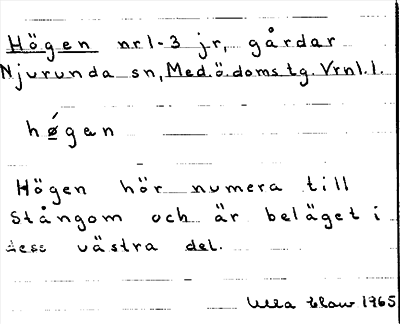 Högen nr 1-3 jr, gårdar
Njurunda sn, Med.ö.domstg. Vrnl.l.
hǿgen
Högen hör numera till
Stångom och är beläget i
dess västra del.
Ulla 1965